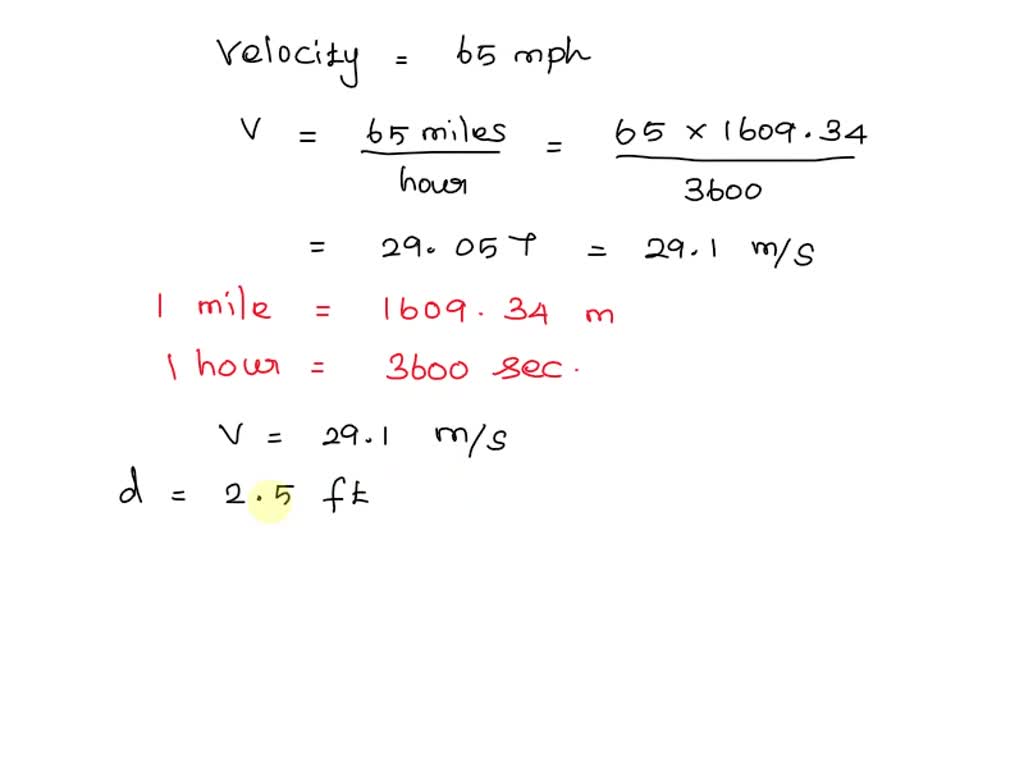 Velocity = 65 mph
V = 65 miles / hour = 65 × 1609.34 / 3600
= 29.057 = 29.1 m/s
1 mile = 1609.34 m
1 hour = 3600 sec.
V = 29.1 m/s
d = 2.5 ft